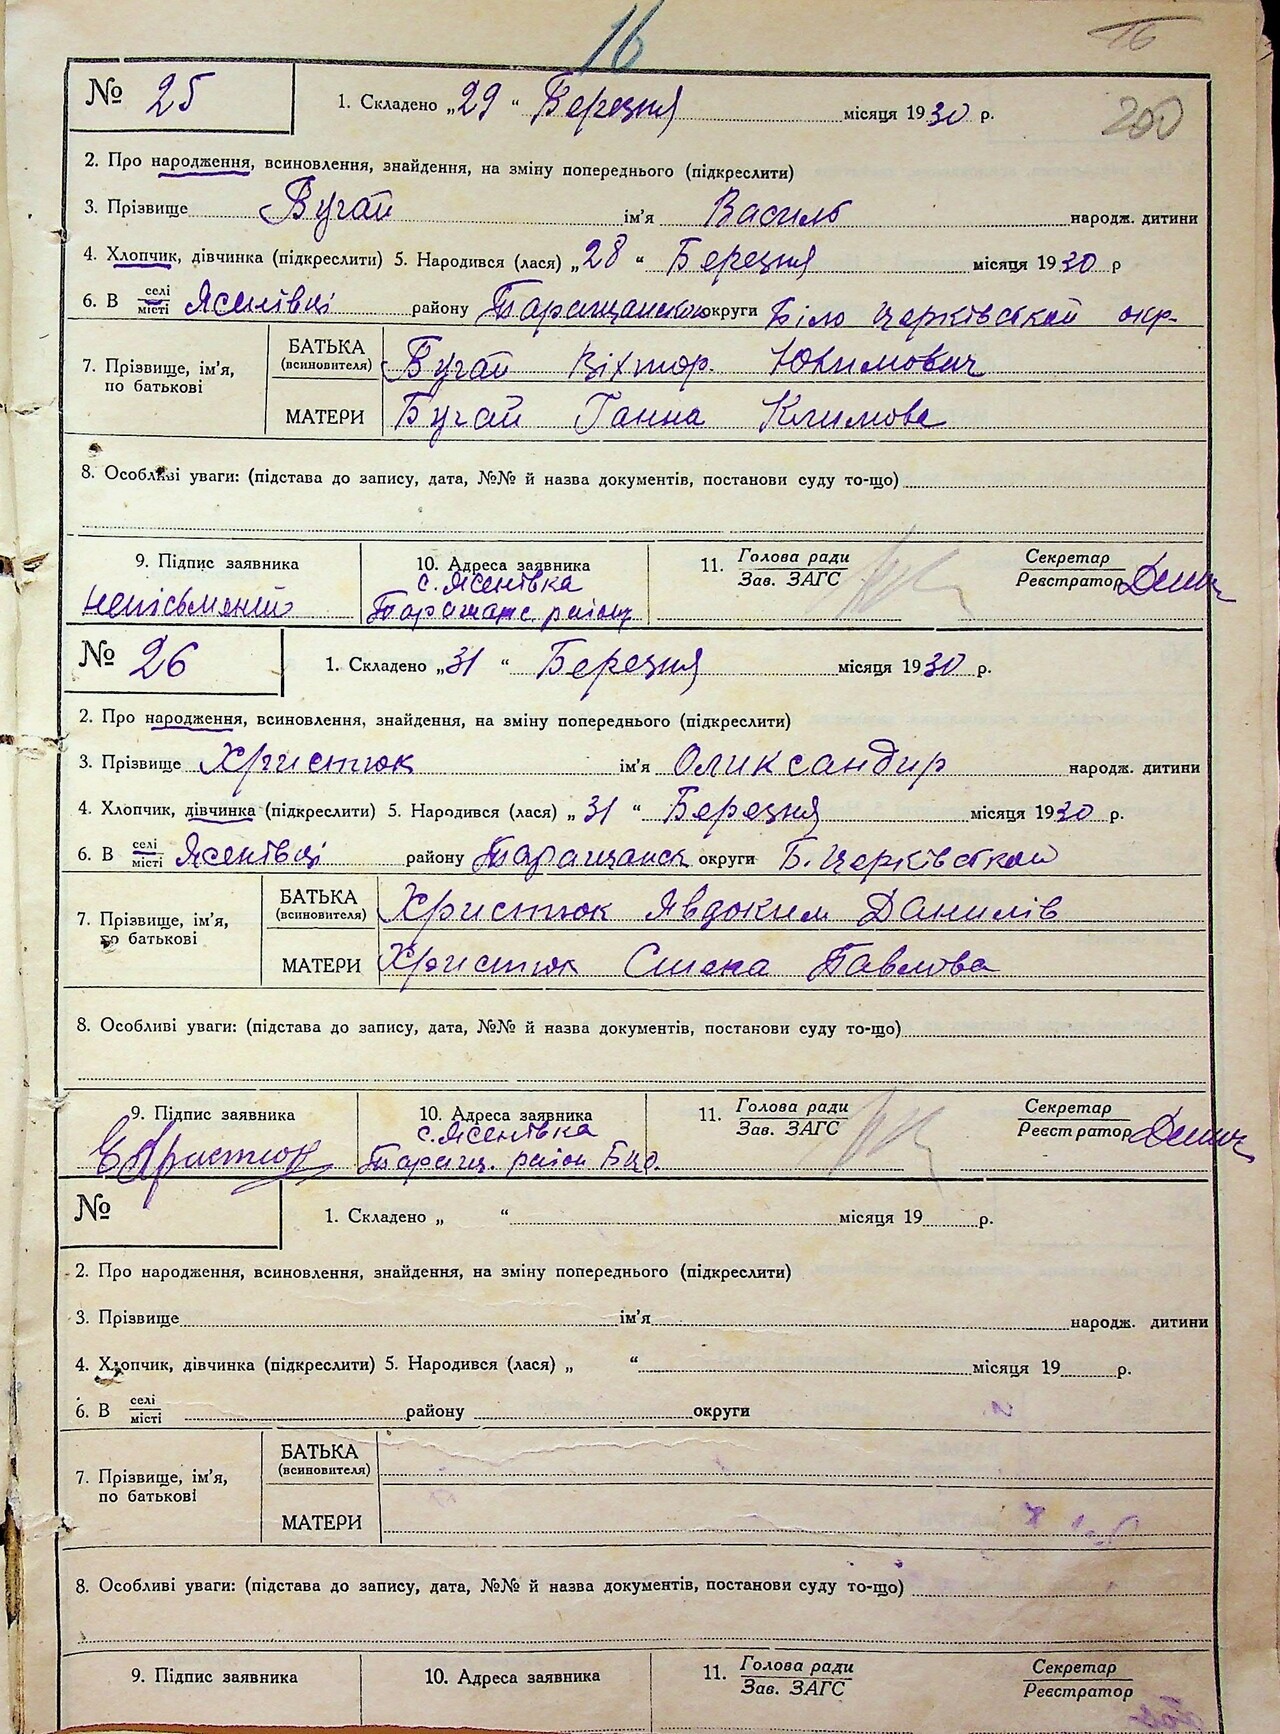 16
16
200
№ 25 1. Складено „29“ Березня місяця 1930 р.
2. Про народження, всиновлення, знайдення, на зміну попереднього (підкреслити)
3. Прізвище Бугай ім'я Василь народж. дитини
4. Хлопчик, дівчинка (підкреслити) 5. Народився (лася) „28“ Березня місяця 1930 р
6. В селі місті Ясенівці району Таращанского округи Біло Церківської окр.
7. Прізвище, ім'я, по батькові
БАТЬКА (всиновителя) Бугай Віхтор. Юхимович
МАТЕРИ Бугай Ганна Климова
8. Особливі уваги: (підстава до запису, дата, №№ й назва документів, постанови суду то-що)
9. Підпис заявника 10. Адреса заявника 11. Голова ради Секретар
с. Ясенівка Зав. ЗАГС Реєстратор
непісьменій Таращанс. району
№ 26 1. Складено „31“ Березня місяця 1930 р.
2. Про народження, всиновлення, знайдення, на зміну попереднього (підкреслити)
3. Прізвище Христюк ім'я Оликсандир народж. дитини
4. Хлопчик, дівчинка (підкреслити) 5. Народився (лася) „31“ Березня місяця 1930 р.
6. В селі місті Ясенівці району Таращанск округи Б. Церківської
7. Прізвище, ім'я, по батькові
БАТЬКА (всиновителя) Христюк Явдоким Данилів
МАТЕРИ Христюк Павлова
8. Особливі уваги: (підстава до запису, дата, №№ й назва документів, постанови суду то-що)
9. Підпис заявника 10. Адреса заявника 11. Голова ради Секретар
с. Ясенівка Зав. ЗАГС Реєстратор
Є Христюк Таращ. район
№ 1. Складено „ “ місяця 19 р.
2. Про народження, всиновлення, знайдення, на зміну попереднього (підкреслити)
3. Прізвище ім'я народж. дитини
4. Хлопчик, дівчинка (підкреслити) 5. Народився (лася) „ “ місяця 19 р.
6. В селі місті району округи
7. Прізвище, ім'я, по батькові
БАТЬКА (всиновителя)
МАТЕРИ
8. Особливі уваги: (підстава до запису, дата, №№ й назва документів, постанови суду то-що)
9. Підпис заявника 10. Адреса заявника 11. Голова ради Секретар
Зав. ЗАГС Реєстратор